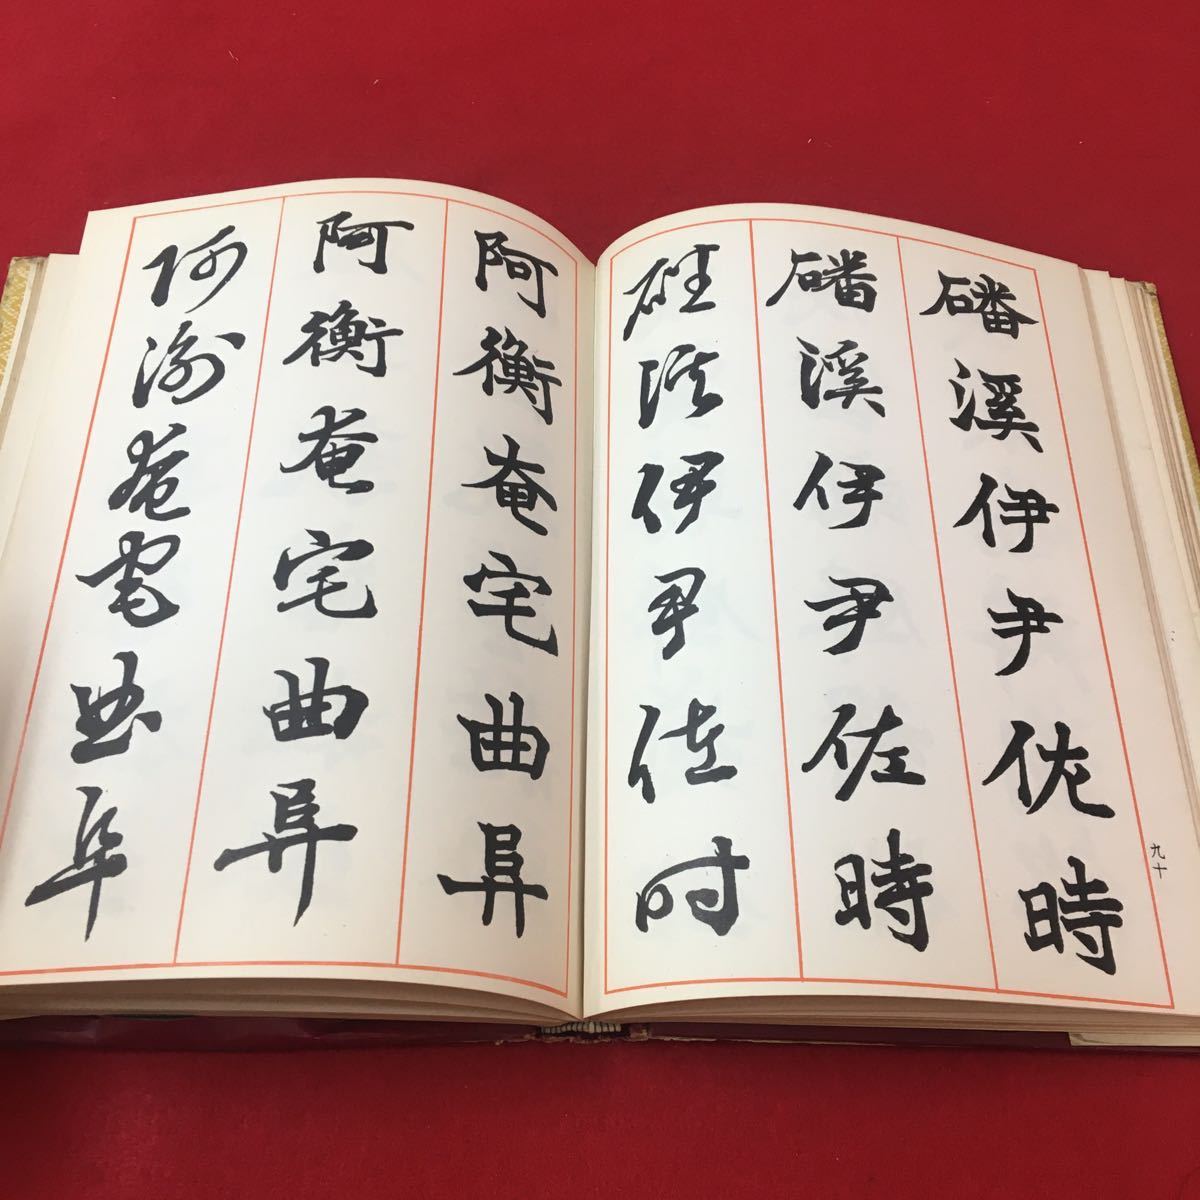 磻溪伊尹佐時
磻溪伊尹佐時
磻溪伊尹佐時
九十
阿衡奄宅曲阜
阿衡奄宅曲阜
阿衡奄宅曲阜